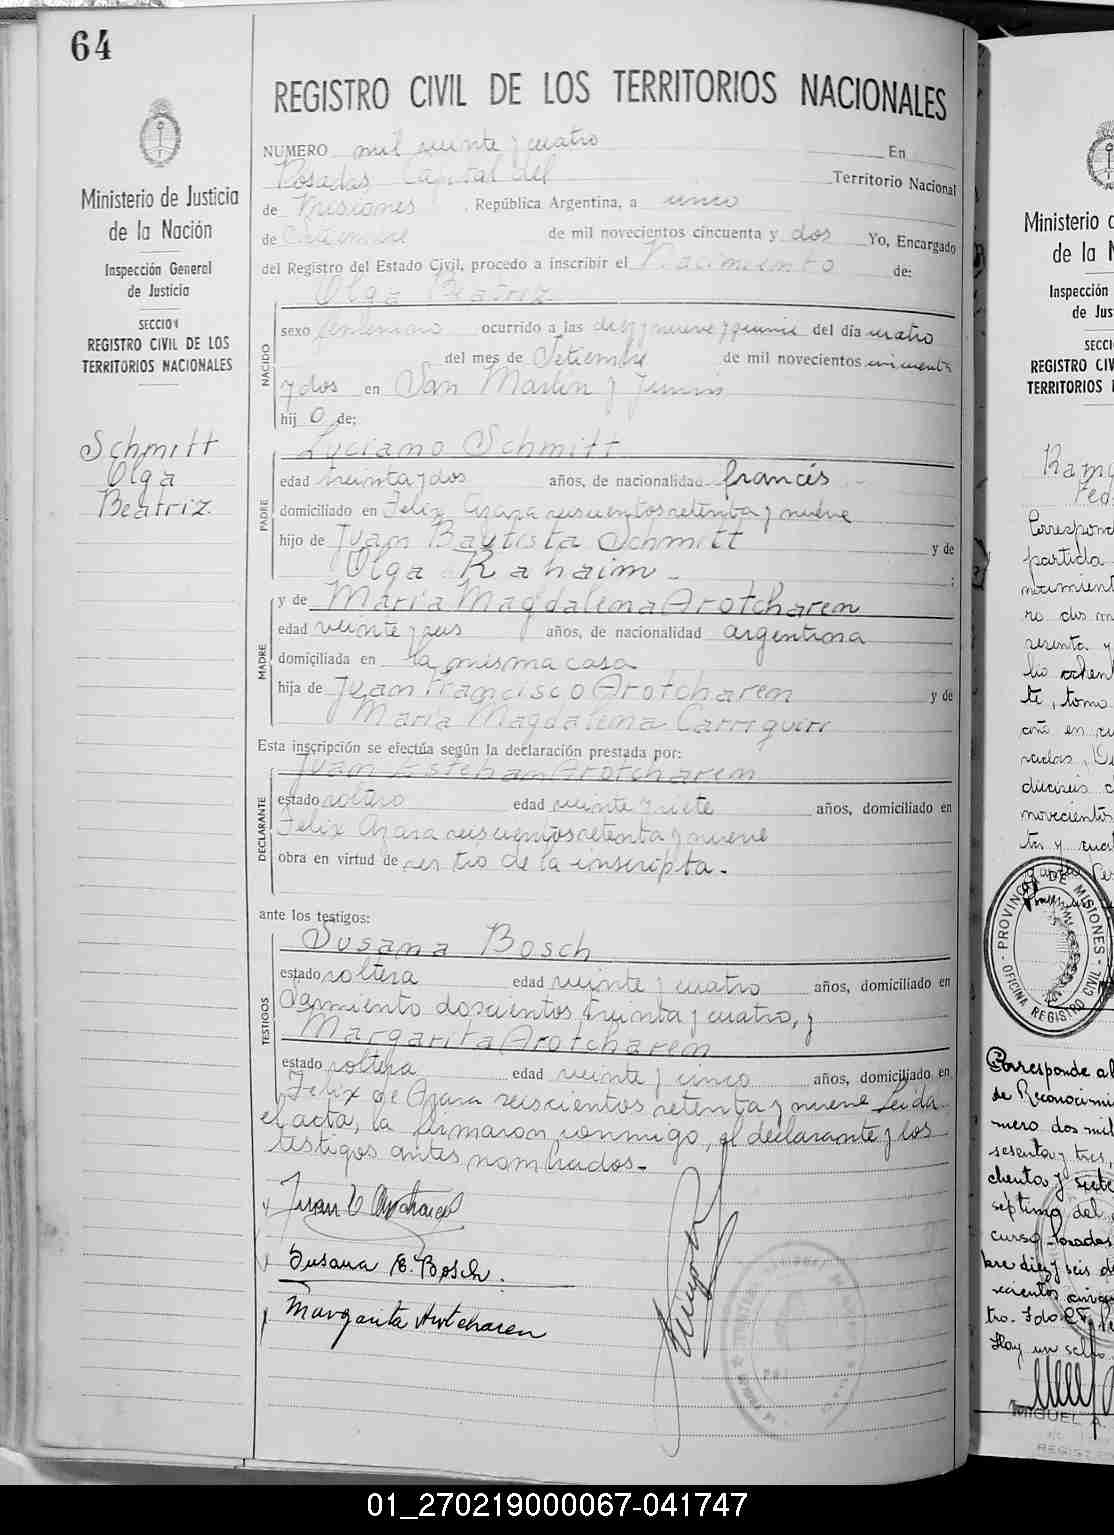 64
Ministerio de Justicia
de la Nación
Inspección General
de Justicia
SECCION
REGISTRO CIVIL DE LOS
TERRITORIOS NACIONALES
Schmitt
Olga
Beatriz.
REGISTRO CIVIL DE LOS TERRITORIOS NACIONALES
NUMERO mil veinte y cuatro En
Posadas, Capital del Territorio Nacional
de Misiones, República Argentina, a cinco
de Setiembre de mil novecientos cincuenta y dos Yo, Encargado
del Registro del Estado Civil, procedo a inscribir el Nacimiento de:
Olga Beatriz
NACIDO
sexo femenino ocurrido a las diez y nueve y quince del día cuatro
del mes de Setiembre de mil novecientos cincuenta
y dos en San Martin y Junin
hij o de:
Luciano Schmitt
PADRE
edad treinta y dos años, de nacionalidad francés
domiciliado en Felix Azara seiscientos setenta y nueve
hijo de Juan Bautista Schmitt y de
Olga Rahaim ;
MADRE
y de María Magdalena Arotcharen
edad veinte y seis años, de nacionalidad argentina
domiciliada en la misma casa
hija de Juan Francisco Arotcharen y de
María Magdalena Carrquiri
Esta inscripción se efectúa según la declaración prestada por:
Juan Esteban Arotcharen
DECLARANTE
estado soltero edad veinte y siete años, domiciliado en
Felix Azara seiscientos setenta y nueve
obra en virtud de ser tio de la inscripta.
ante los testigos:
Susana Bosch
TESTIGOS
estado soltera edad veinte y cuatro años, domiciliado en
Sarmiento doscientos treinta y cuatro, y
Margarita Arotcharen
estado soltera edad veinte y cinco años, domiciliado en
Felix de Azara seiscientos setenta y nueve Leida
el acta, la firmaron conmigo, el declarante y los
testigos antes nombrados.-
Juan E Arotcharen
Susana E. Bosch.
Margarita Arotcharen
Ministerio d
de la N
Inspección
de Jus
SECCI
REGISTRO CIV
TERRITORIOS
Ramo
Fed
Correspond
partida
nacimient
ro dos m
sesenta y
lio ochen
te, tomo
PROVINCIA DE MISIONES
OFICINA REGISTRO CIVIL
Corresponde al
de Reconocimi
mero dos mil
sesenta y tres,
chenta y siete
séptimo del
curso. Posadas
bre diez y seis d
MIGUEL A.
01_270219000067-041747